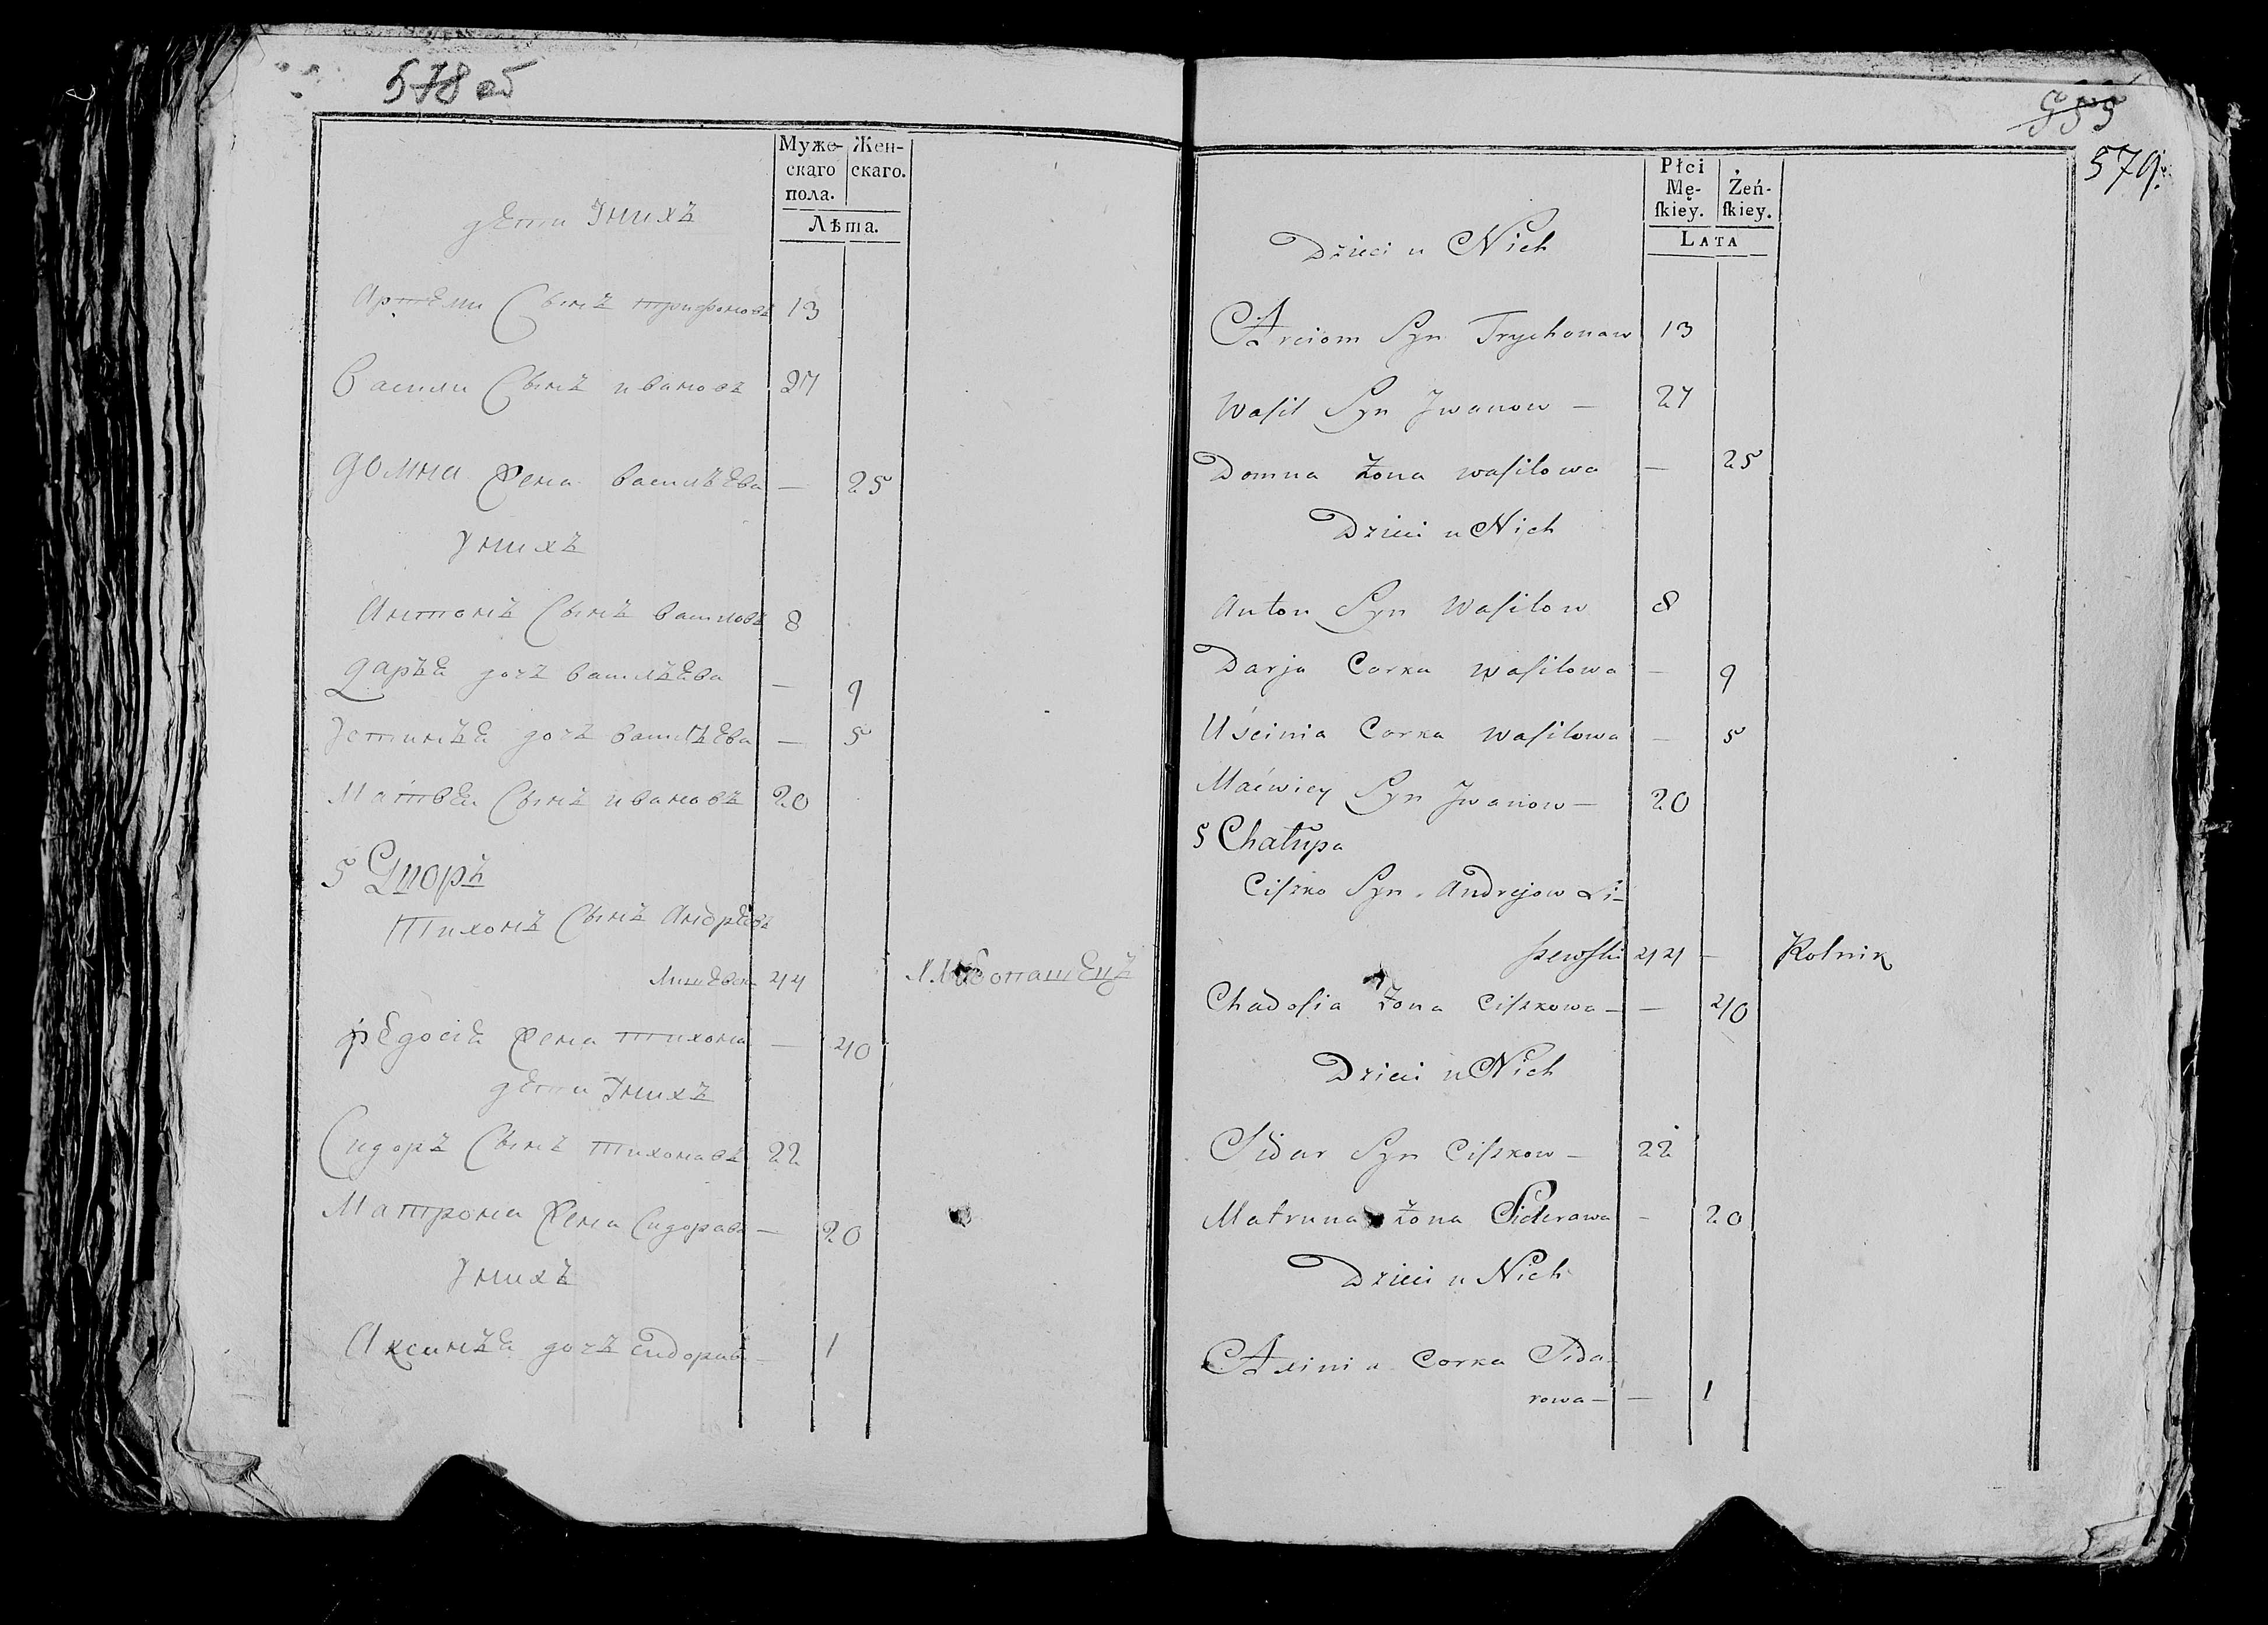 578 об
Муже-
скаго
пола.
Жен-
скаго.
Лѣта.
дети Унихъ
Артеми Сынъ трифоновъ 13
Васили Сынъ ивановъ 27
Домна жена васильева — 25
Унихъ
Антонъ Сынъ василовъ 8
дарье дочь васильева — 9
Устинье дочь васильева — 5
Матвеи Сынъ ивановъ 20
5 Дворъ
Тихонъ Сынъ Андреевъ
44
Федосіе жена тихона — 40
дети Унихъ
Сидоръ Сынъ тихоновъ 22
Матрона жена Сидорава — 20
Унихъ
Аксинье дочь сидорава — 1
955
579.
Płci
Mę-
ſkiey.
Żeń-
ſkiey.
LATA
Dzieci u Nich
Arciom Syn Trychonaw 13
Waſil Syn Jwanow — 27
Domna Żona waſilowa — 25
Dzieci u Nich
Anton Syn Waſilow 8
Darja Corka Waſilowa — 9
Uścinia Corka Waſilowa — 5
Maćwiey Syn Jwanow — 20
5 Chałupa
Ciſzko Syn Andrejow Li-
ſzewſki 44 — Rolnik
Chadoſia Żona Ciſzkowa — — 40
Dzieci u Nich
Sidar Syn Ciſzkow — 22
Matruna Żona Siderawa — 20
Dzieci u Nich
Axinia Corka Sida-
rowa — — 1